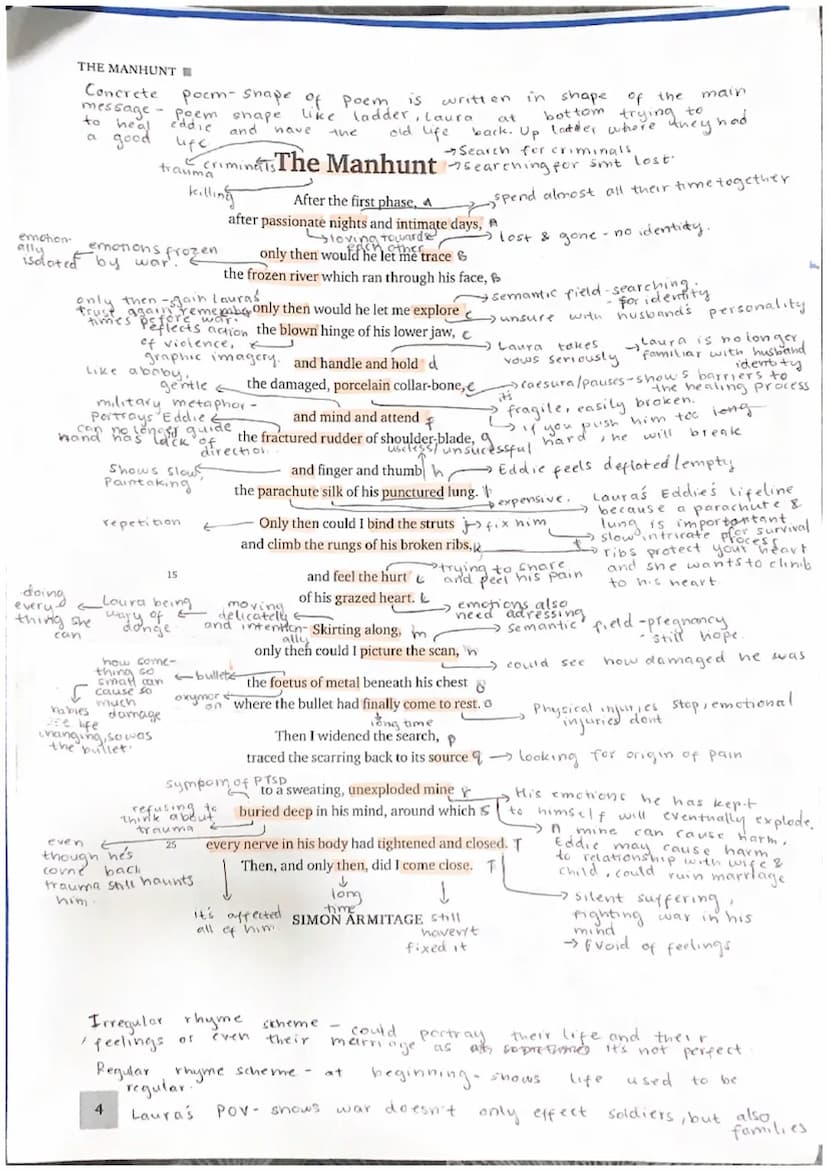 THE MANHUNT
Concrete poem - shape of poem is written in shape of the main
message - poem shape like ladder, Laura at bottom trying to
to heal eddie and have the old life back. Up ladder where they had
a good life
→ Search for criminals
trauma criminals The Manhunt → searching for smt lost.
killing
After the first phase, A → spend almost all their time together
after passionate nights and intimate days, A
loving towards each other → lost & gone - no identity.
emotionally isolated ← emotions frozen by war.
only then would he let me trace B
the frozen river which ran through his face, B
→ semantic field - searching - for identity
only then - gain Laura's trust again, remember times before war.
only then would he let me explore C
→ unsure with husband's personality
reflects action of violence, graphic imagery.
the blown hinge of his lower jaw, C
→ Laura takes vows seriously → Laura is no longer familiar with husband identity
and handle and hold d
like a baby, gentle ←
the damaged, porcelain collar-bone, e → caesura/pauses - shows barriers to the healing process
it's fragile, easily broken.
↳ if you push him too long hard, he will break
military metaphor - portrays Eddie can no longer guide hand has lack of direction.
and mind and attend f
the fractured rudder of shoulder-blade, g
useless/unsucessful
shows slow, paintaking,
and finger and thumb h → Eddie feels deflated/empty
the parachute silk of his punctured lung. I
→ expensive. → Laura's Eddie's lifeline because a parachute & lung is important for survival
repetition ←
Only then could I bind the struts j → fix him
→ slow intricate process
and climb the rungs of his broken ribs, k
→ ribs protect your heart and she wants to climb to his heart.
→ trying to share and feel his pain
15
and feel the hurt L
of his grazed heart. L
→ emotions also need adressing
doing everything she can ← Laura being wary of danger ← moving delicately and intentionally
Skirting along, m → semantic field - pregnancy - still hope.
only then could I picture the scan, n
→ could see how damaged he was
how something so small can cause so much damage ← bullet
the foetus of metal beneath his chest o
babies are life changing, so was the bullet.
oxymoron ←
where the bullet had finally come to rest. o
long time
→ Physical injuries stop, emotional injuries dont
Then I widened the search, p
traced the scarring back to its source q → looking for origin of pain
sympom of PTSD
to a sweating, unexploded mine r
→ His emotions he has kept to himself will eventually explode.
refusing to think about trauma
buried deep in his mind, around which S
→ A mine can cause harm, Eddie may cause harm to relationship with wife & child, could ruin marriage
25
every nerve in his body had tightened and closed. T
even though he's come back trauma still haunts him.
Then, and only then, did I come close. T
it's affected all of him
long time
still haven't fixed it
→ silent suffering, fighting war in his mind
→ of feelings
SIMON ARMITAGE
Irregular rhyme scheme - could portray their life and their
feelings or even their marriage as it's not perfect.
Regular rhyme scheme - at beginning - shows life used to be
regular.
4
Laura's POV - shows war doesn't only effect soldiers, but also
families